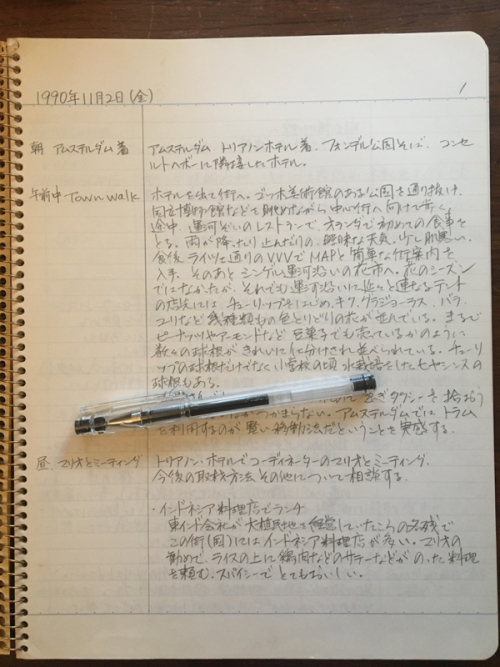 1990年11月2日(金)
1
朝 アムステルダム着
アムステルダム トリアノンホテル着。フォンデル公園そば、コンセ
ルトヘボーに隣接したホテル。
午前中 Town walk
ホテルを出て街へ。ゴッホ美術館のある公園を通り抜け、
国立博物館などを眺めながら 中心街へ向けて歩く。
途中、運河ぞいのレストランで、オランダで初めての食事を
とる。雨が降ったり止んだりの、曖昧な天気。少し肌寒い。
食後 ライツェ通りのVVVでMAPと簡単な街案内を
入手。そのあとシンゲル運河沿いの花市へ。花のシーズン
ではなかったが、それでも運河沿いに延々と連なるテント
の店先には、チューリップをはじめ、キク、グラジョーラス、バラ、
ユリなど幾種類もの色とりどりの花が並んでいる。まるで
ピーナッツやアーモンドなど豆菓子でも売っているかのように
数々の球根がきれいに仕分けされ並べられている。チューリ
ップの球根だけでなく小学校の頃、水栽培をしたヒヤシンスの
球根もある。
タクシーを拾おう
つかまらない。アムステルダムではトラム
を利用するのが賢い移動法だということを実感する。
昼 マリオとミーティング
トリアノン・ホテルでコーディネーターのマリオとミーティング。
今後の取材方法その他について相談する。
・インドネシア料理店でランチ
東インド会社が大植民地を経営していたころの名残で
この街(国)にはインドネシア料理店が多い。マリオの
勧めで、ライスの上に鶏肉などのサテーなどがのった料理
を頼む。スパイシーでとてもおいしい。